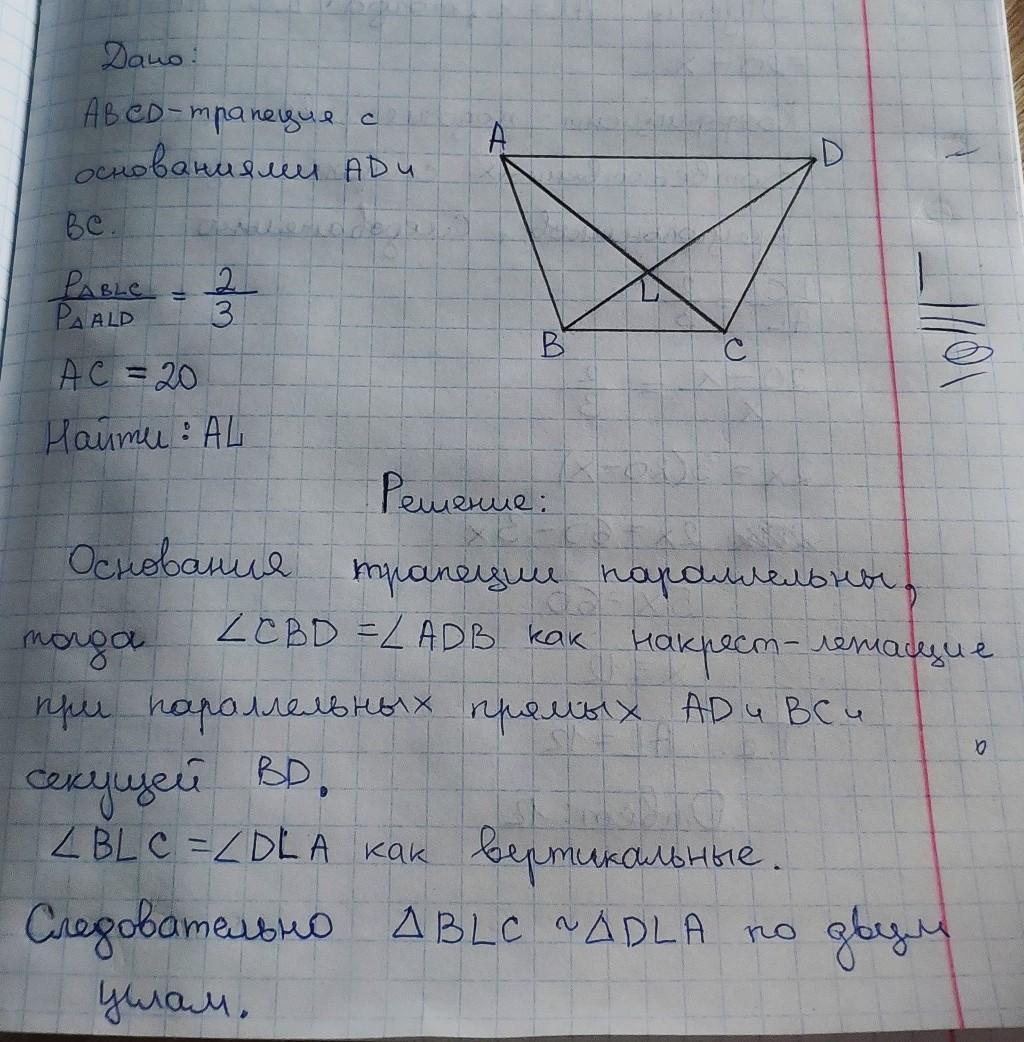 Дано:
ABCD-трапеция с
основаниями AD и
BC.
P△BLC / P△ALD = 2 / 3
AC = 20
Найти : AL
A
D
L
B
C
Решение:
Основания трапеции параллельны,
тогда ∠CBD = ∠ADB как накрест-лежащие
при параллельных прямых AD и BC и
секущей BD.
∠BLC = ∠DLA как вертикальные.
Следовательно △BLC ~ △DLA по двум
углам.